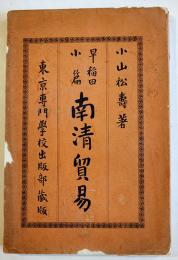 小山松壽著
早稲田
小篇
南清貿易
東京専門學校出版部蔵版